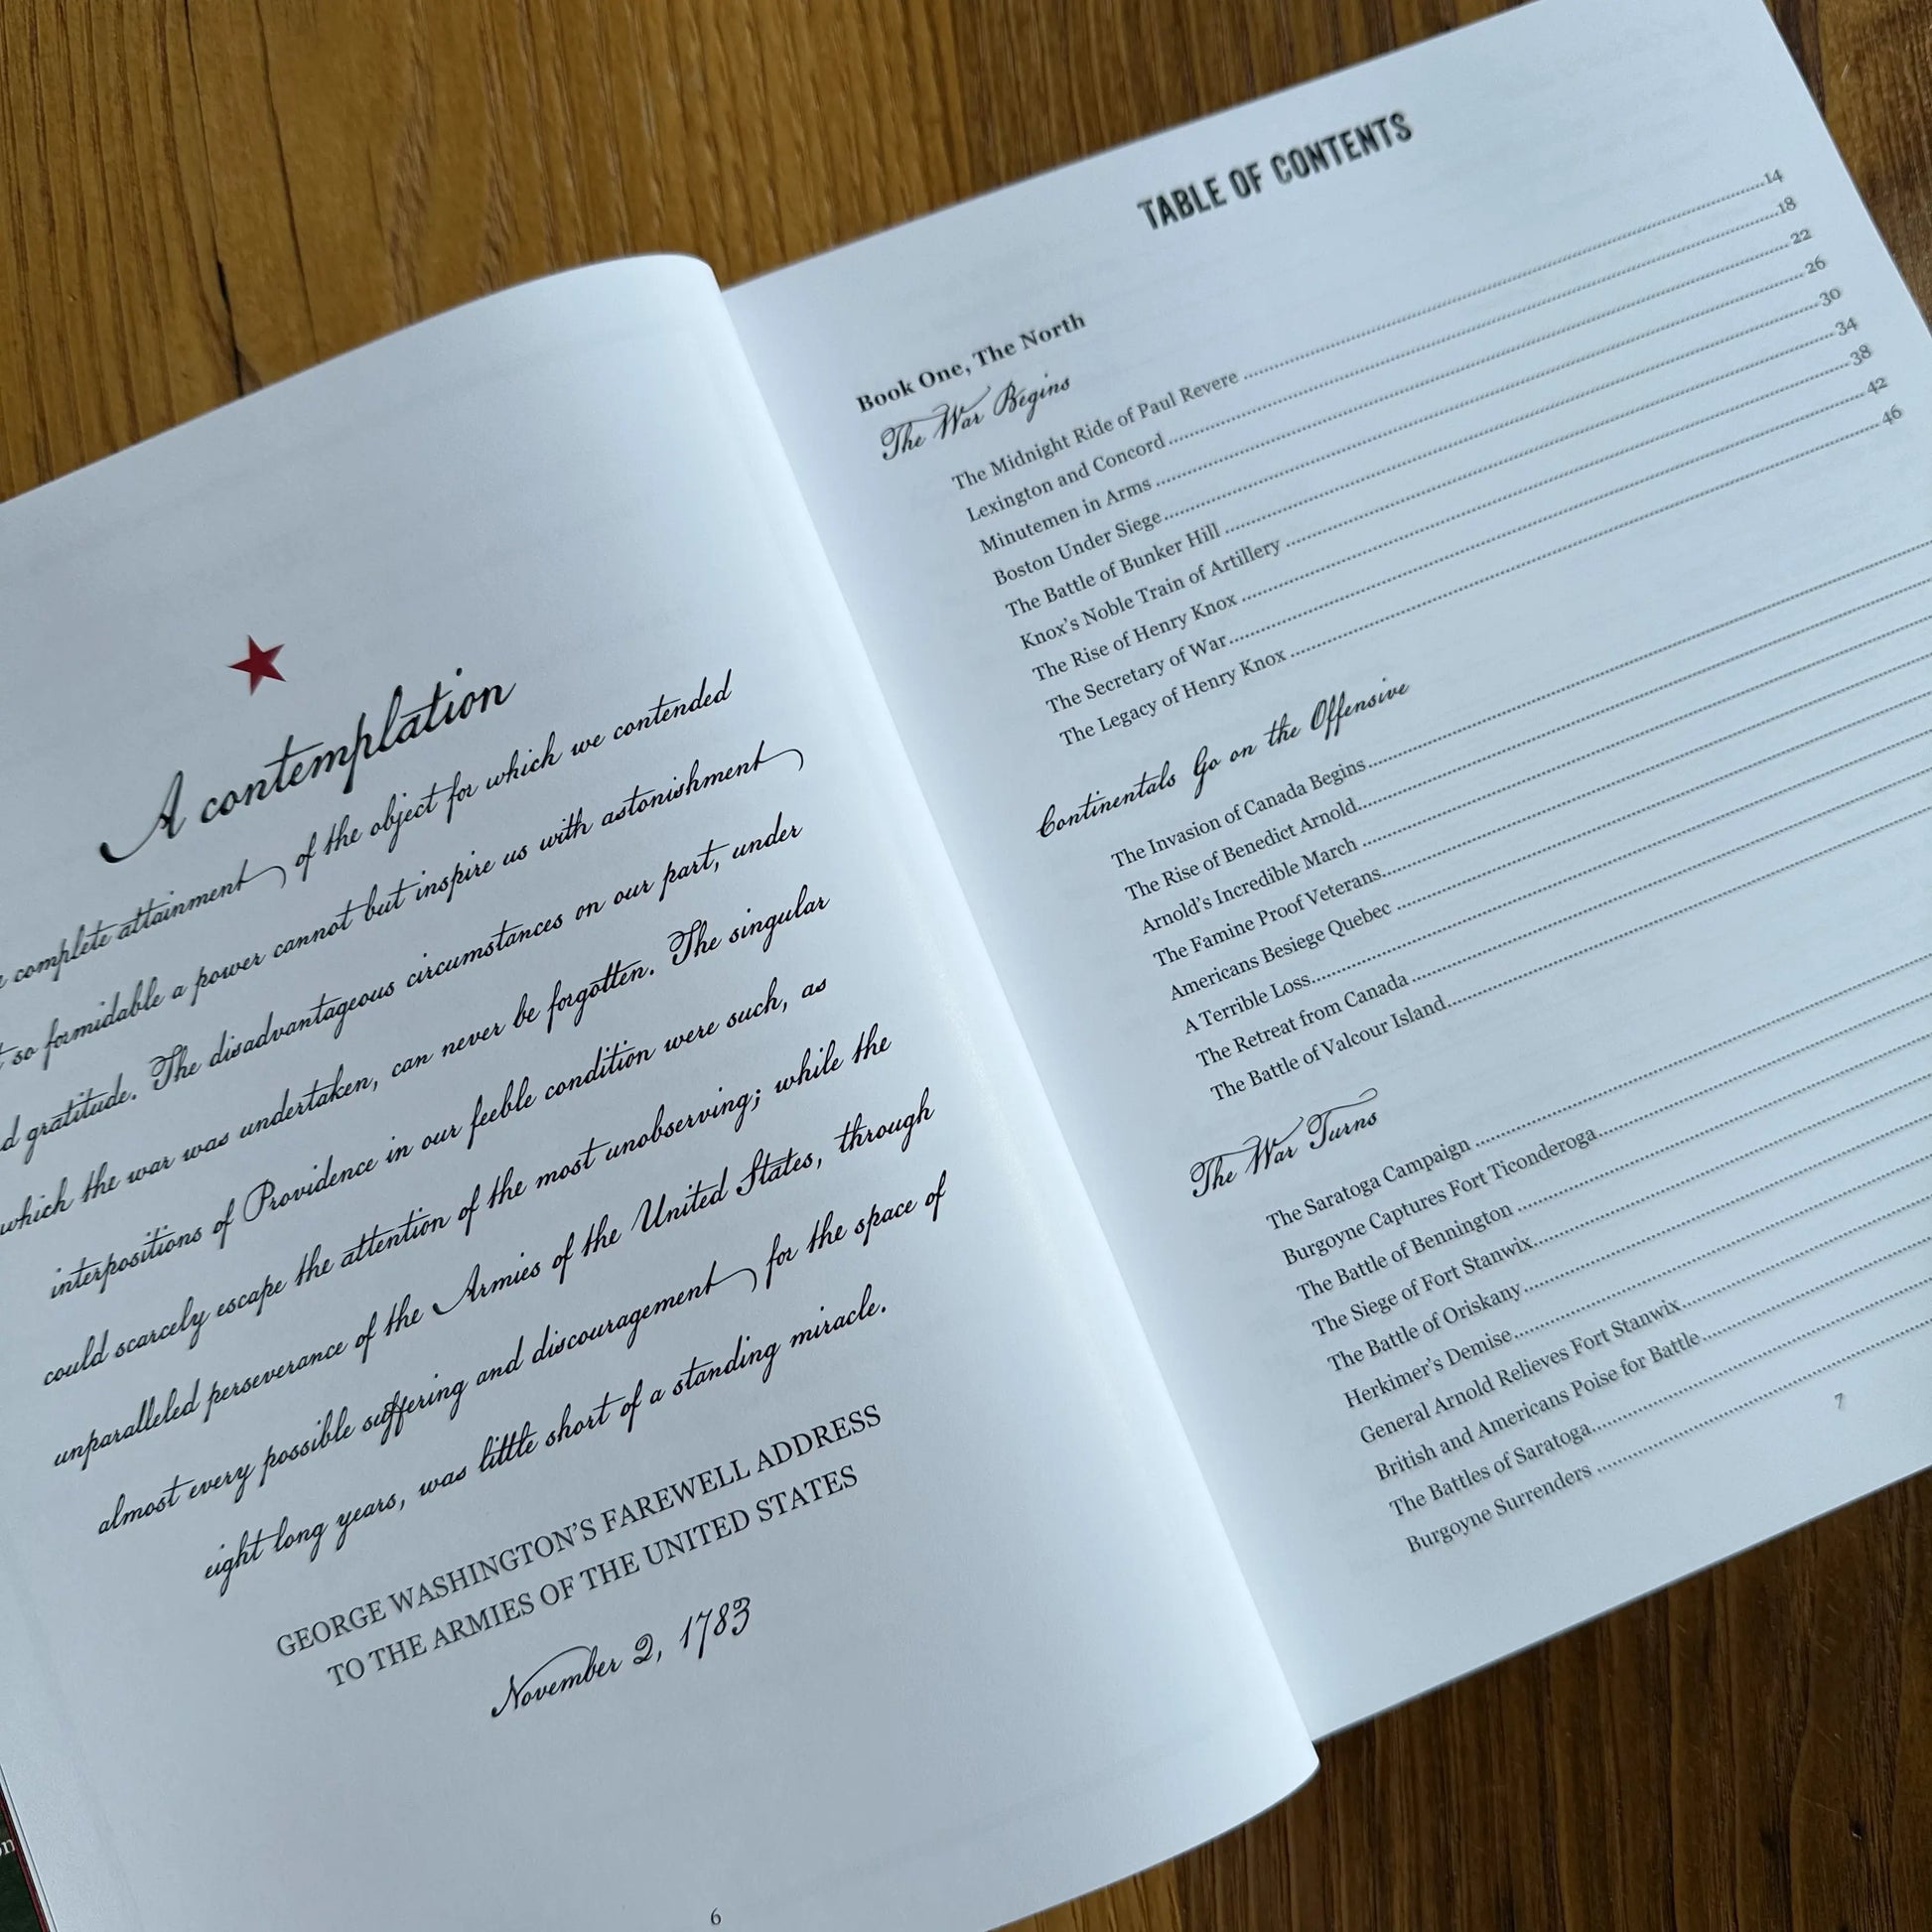 A contemplation
complete attainment of the object for which we contended
so formidable a power cannot but inspire us with astonishment
gratitude. The disadvantageous circumstances on our part, under
which the war was undertaken, can never be forgotten. The singular
interpositions of Providence in our feeble condition were such, as
could scarcely escape the attention of the most unobserving; while the
unparalleled perseverance of the Armies of the United States, through
almost every possible suffering and discouragement for the space of
eight long years, was little short of a standing miracle.
GEORGE WASHINGTON'S FAREWELL ADDRESS
TO THE ARMIES OF THE UNITED STATES
November 2, 1783
6
TABLE OF CONTENTS
Book One, The North
The War Begins
The Midnight Ride of Paul Revere ........ 14
Lexington and Concord ........ 18
Minutemen in Arms ........ 22
Boston Under Siege ........ 26
The Battle of Bunker Hill ........ 30
Knox's Noble Train of Artillery ........ 34
The Rise of Henry Knox ........ 38
The Secretary of War ........ 42
The Legacy of Henry Knox ........ 46
Continentals Go on the Offensive
The Invasion of Canada Begins
The Rise of Benedict Arnold
Arnold's Incredible March
The Famine Proof Veterans
Americans Besiege Quebec
A Terrible Loss
The Retreat from Canada
The Battle of Valcour Island
The War Turns
The Saratoga Campaign
Burgoyne Captures Fort Ticonderoga
The Battle of Bennington
The Siege of Fort Stanwix
The Battle of Oriskany
Herkimer's Demise
General Arnold Relieves Fort Stanwix
British and Americans Poise for Battle
The Battles of Saratoga
Burgoyne Surrenders
7